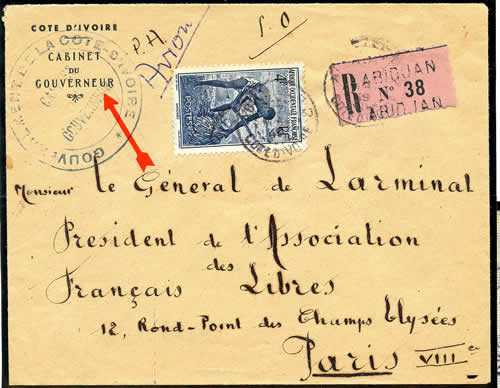 COTE D'IVOIRE
CABINET
DU
GOUVERNEUR
GOUVERNEMENT DE LA COTE D'IVOIRE
P.A.
Avion
S.O
AFRIQUE OCCIDENTALE FRANÇAISE
POSTES
4F
COTE D'IVOIRE
R
ABIDJAN
N° 38
ABIDJAN
Monsieur le Général de Larminat
President de l'Association
des
Français Libres
12, Rond-Point des Champs Elysées
Paris VIIIe